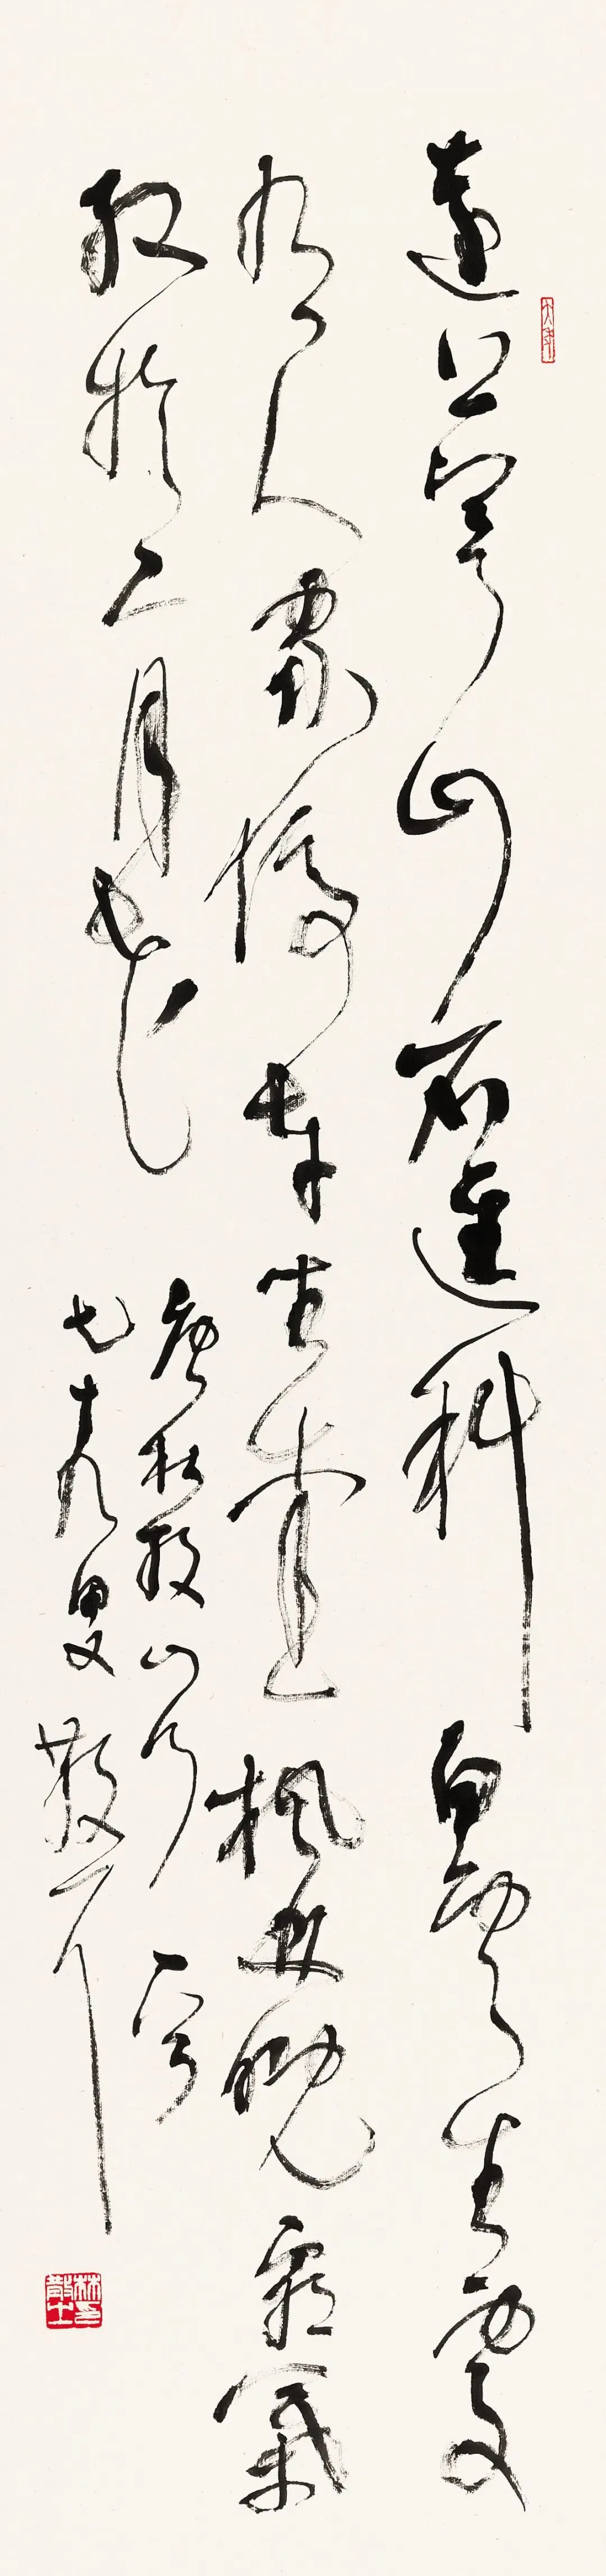 遠上寒山石逕斜白雲生處
有人家停車坐愛楓林晚霜葉
紅於二月花
唐杜牧山行一首
七十九叟散耳
大年
林散之印